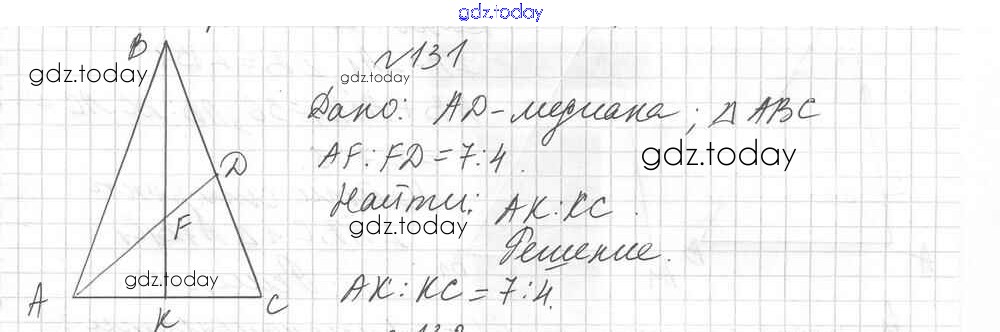 gdz.today
B
№131
gdz.today
gdz.today
Дано: AD-медиана; △ABC
AF:FD=7:4.
gdz.today
D
Найти: AK:KC.
gdz.today
F
Решение.
gdz.today
AK:KC=7:4.
A
K
C